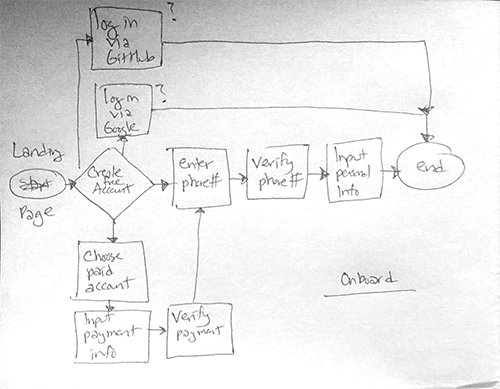 log in
via
GitHub
?
log in
via
Google
?
Landing
Page
Create
free
Account
enter
phone#
Verify
phone#
Input
personal
Info
end
Choose
paid
account
Input
payment
info
Verify
payment
Onboard